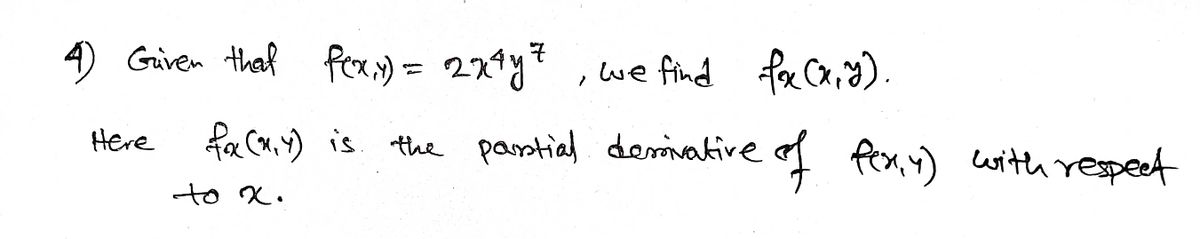 4) Given that f(x,y) = 2x⁴y⁷ , we find fₓ(x,y).
Here fₓ(x,y) is the partial derivative of f(x,y) with respect
to x.